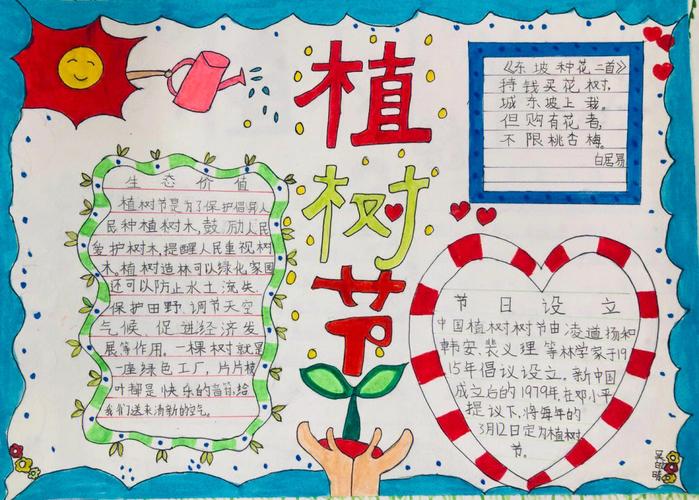 植
树
节
《东坡种花二首》
持钱买花树,
城东坡上栽。
但购有花者,
不限桃杏梅。
白居易
生态价值
植树节是为了保护倡导人
民种植树木,鼓励人民
爱护树木,提醒人民重视树
木。植树造林可以绿化家园
还可以防止水土流失、
保护田野、调节天空
气候、促进经济发
展等作用。一棵树就是
一座绿色工厂,片片
叶都是快乐的音符,给
我们送来清新的空气。
节日设立
中国植树树节由凌道扬和
韩安、裴义理等林学家于19
15年倡议设立。新中国
成立白的1979年,在邓小平
提议下,将每年的
3月12日定为植树
节。